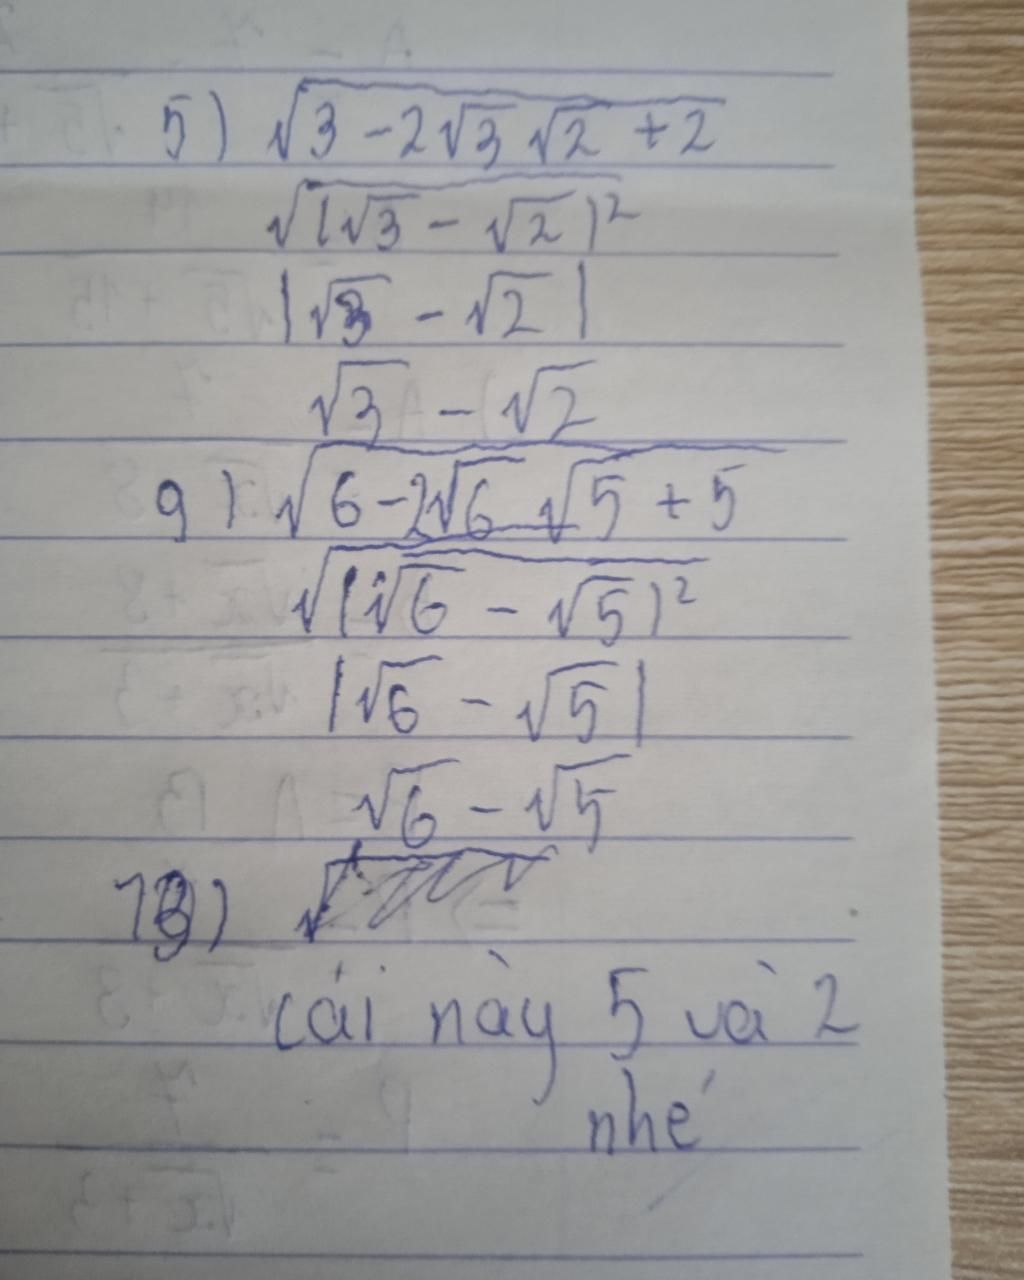 5) √(3 - 2√3 √2 + 2)
√((√3 - √2)²)
|√3 - √2|
√3 - √2
9) √(6 - 2√6 √5 + 5)
√((√6 - √5)²)
|√6 - √5|
√6 - √5
13) √
cái này 5 và 2
nhé